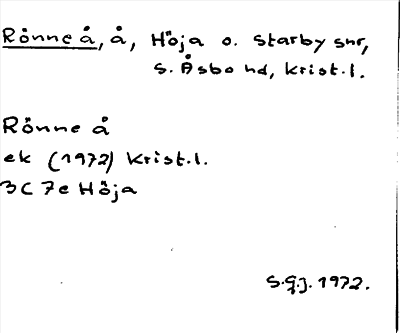 Rönne å, å, Höja o. Starby snr,
S. Åsbo hd, Krist.l.
Rönne å
ek (1972) Krist.l.
3C 7e Höja
S.G.J. 1972.